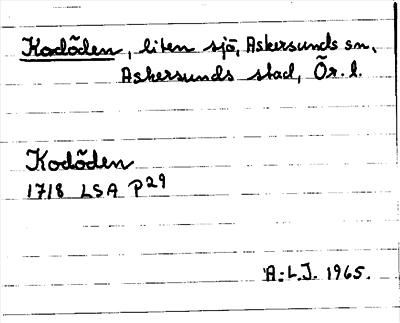 Kodöden, liten sjö, Askersunds sn,
Askersunds stad, Ör. l.
Kodöden
1718 LSA P29
A:L.J. 1965.